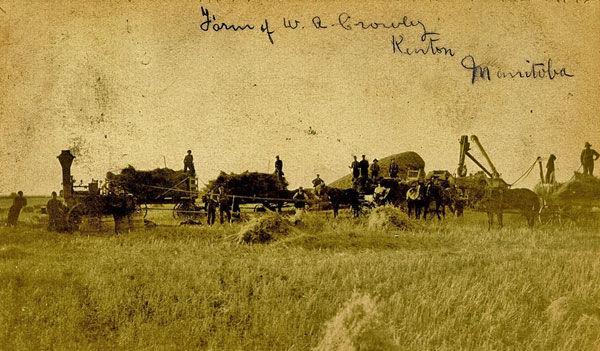 Farm of W. A. Crowley
Kenton
Manitoba